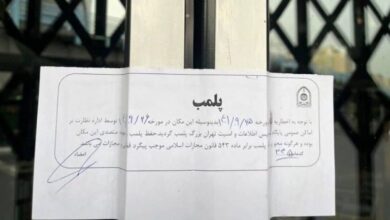 پلمب
با توجه به اخطاریه مورخه ۴۱/۹/۲۵ بدینوسیله این مکان در مورخه ۹/۲۶ توسط اداره نظارت بر
اماکن عمومی پلیس اطلاعات و امنیت تهران بزرگ پلمب گردید، حفظ پلمب متصدی این مکان
بوده و هرگونه پلمب برابر ماده ۵۴۳ قانون مجازات اسلامی موجب پیگرد مجازات می باشد
امضاء